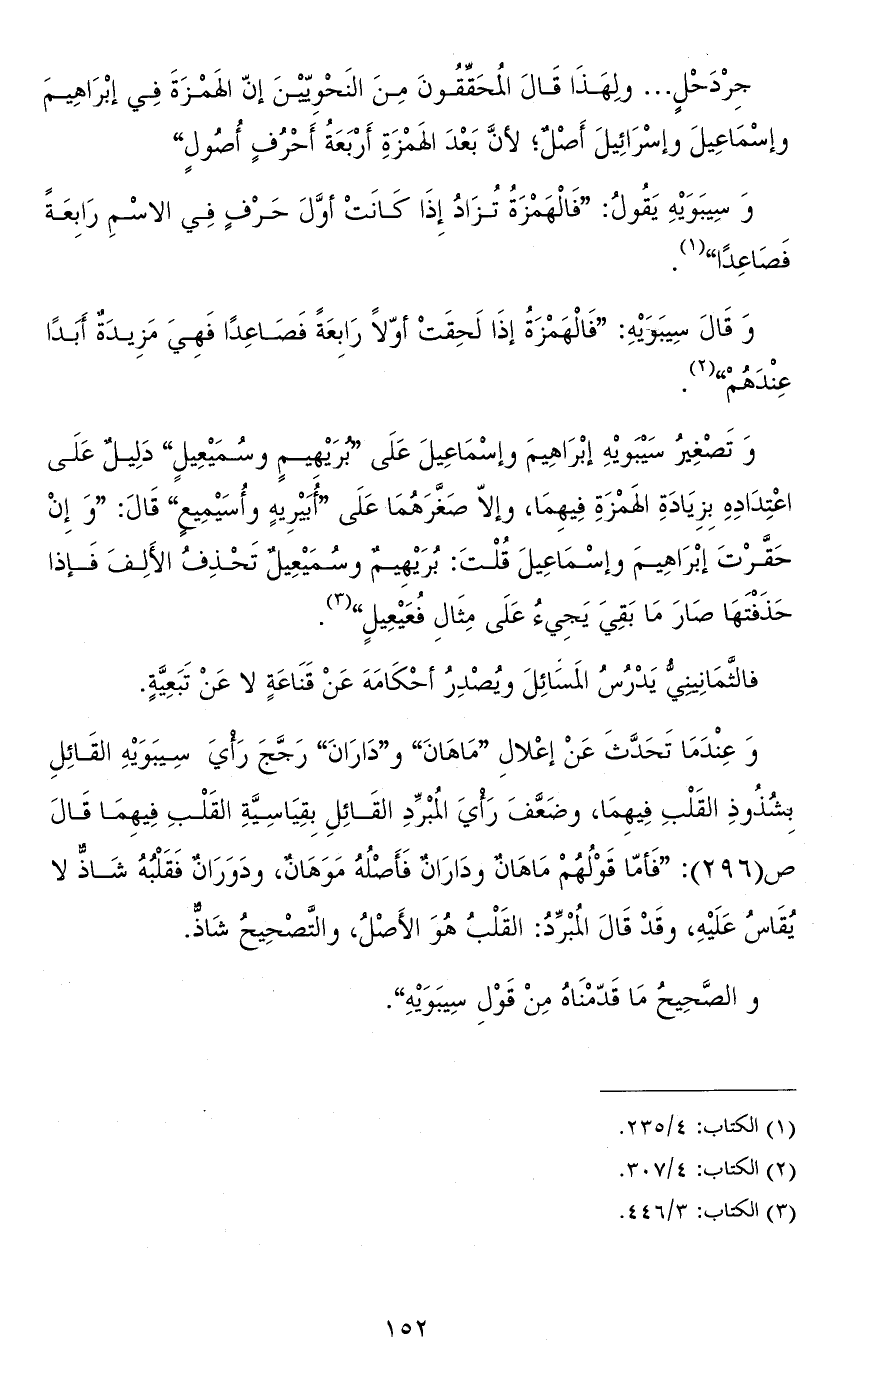 جِرْدَحْلٍ... ولِهَذَا قَالَ الْمُحَقِّقُونَ مِنَ النَّحْوِيِّيْنَ إنّ الهَمْزَةَ فِي إبْرَاهِيمَ
وإسْمَاعِيلَ وإسْرَائِيلَ أَصْلٌ؛ لأنَّ بَعْدَ الهَمْزَةِ أَرْبَعَةُ أَحْرُفٍ أُصُولٍ“
وَ سِيبَوَيْهِ يَقُولُ: ”فَالْهَمْزَةُ تُزَادُ إذَا كَانَتْ أوَّلَ حَرْفٍ فِي الاسْمِ رَابِعَةً
فَصَاعِدًا“(١).
وَ قَالَ سِيبَوَيْهِ: ”فَالْهَمْزَةُ إذَا لَحِقَتْ أوّلاً رَابِعَةً فَصَاعِدًا فَهِيَ مَزِيدَةٌ أَبَدًا
عِنْدَهُمْ“(٢).
وَ تَصْغِيرُ سَيْبَوِيْهِ إبْرَاهِيمَ وإسْمَاعِيلَ عَلَى ”بُرَيْهِيمٍ وسُمَيْعِيلٍ“ دَلِيلٌ عَلَى
اعْتِدَادِهِ بِزِيَادَةِ الهَمْزَةِ فِيهِمَا، وإلاّ صَغَّرَهُمَا عَلَى ”أُبَيْرِيهٍ وأُسَيْمِيعٍ“ قَالَ: ”وَ إنْ
حَقَّرْتَ إبْرَاهِيمَ وإسْمَاعِيلَ قُلْتَ: بُرَيْهِيمٌ وسُمَيْعِيلٌ تَحْذِفُ الأَلِفَ فَإذا
حَذَفْتَهَا صَارَ مَا بَقِيَ يَجِيءُ عَلَى مِثَالِ فُعَيْعِيلٍ“(٣).
فالثَّمَانِينِيُّ يَدْرُسُ الْمَسَائِلَ ويُصْدِرُ أحْكَامَهَ عَنْ قَنَاعَةٍ لا عَنْ تَبَعِيَّةٍ.
وَ عِنْدَمَا تَحَدَّثَ عَنْ إعْلالِ ”مَاهَان“ و”دَارَان“ رَجَّحَ رَأْيَ سِيبَوَيْهِ القَائِلِ
بِشُذُوذِ القَلْبِ فِيهِمَا، وضَعَّفَ رَأْيَ الْمُبَرِّدِ القَائِلِ بِقِيَاسِيَّةِ القَلْبِ فِيهِمَا قَالَ
ص(٢٩٦): ”فَأمّا قَوْلُهُمْ مَاهَانٌ ودَارَانٌ فَأَصْلُهُ مَوَهَانٌ، ودَوَرَانٌ فَقَلْبُهُ شَاذٌّ لا
يُقَاسُ عَلَيْهِ، وقَدْ قَالَ الْمُبَرِّدُ: القَلْبُ هُوَ الأَصْلُ، والتَّصْحِيحُ شَاذٌّ.
و الصَّحِيحُ مَا قَدّمْنَاهُ مِنْ قَوْلِ سِيبَوَيْهِ“.
(١) الكتاب: ٢٣٥/٤.
(٢) الكتاب: ٣٠٧/٤.
(٣) الكتاب: ٤٤٦/٣.
١٥٢